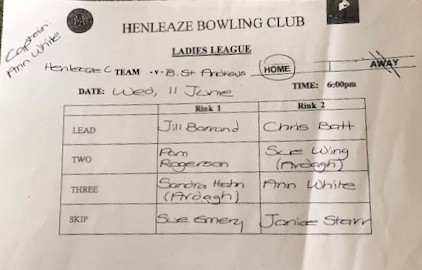 HENLEAZE BOWLING CLUB
Captain
Ann White
LADIES LEAGUE
Henleaze C TEAM -v- B. St Andrews HOME AWAY
DATE: Wed, 11 June TIME: 6:00pm
Rink 1 Rink 2
LEAD Jill Borrand Chris Batt
TWO Pam Rogerson Sue Wing (Ardagh)
THREE Sandra Hahn (Ardagh) Ann White
SKIP Sue Emery Janice Starr